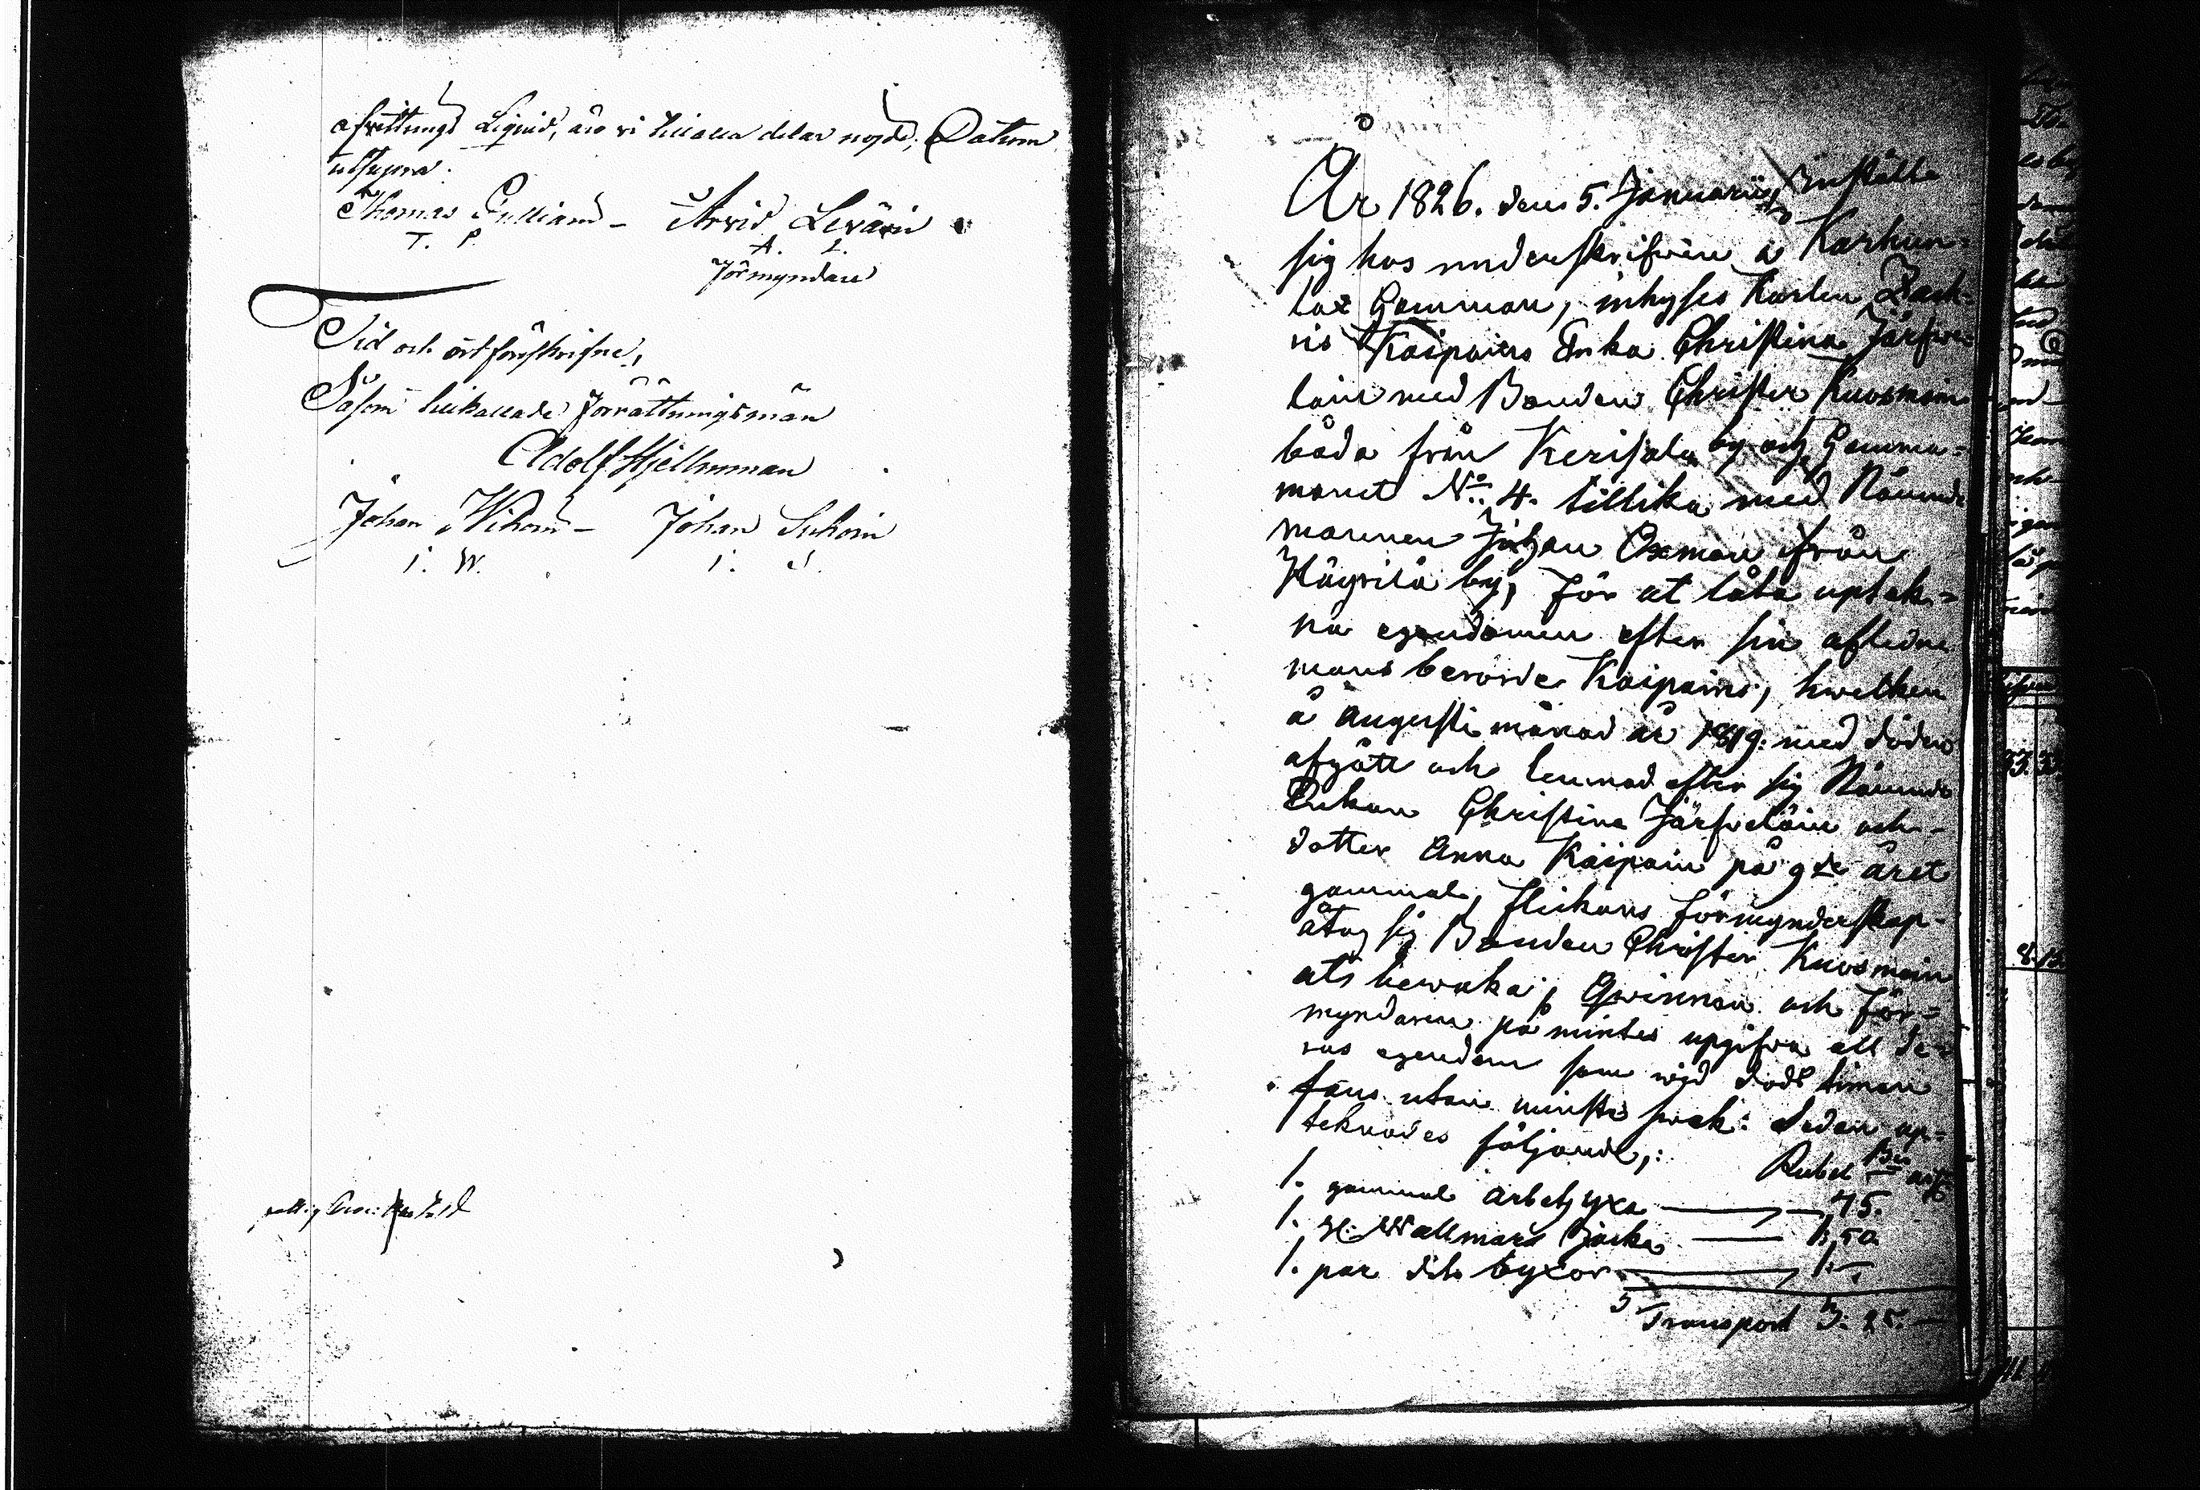 afvittnings Liquid, äro vi till alla delar nöjde, Datum
utsupra.
Thomas Pulliain – Arvid Leväin
T. P. A. L.
Förmyndare
Tid och ort förskrifne,
Såsom tillkallade Förrättningsmän
Adolf Hjellmman
Johan Wihoin – Johan Suhoin
I. W. I. S.
År 1826. den 5. Januarii, Instälte
sig hos underskrifven å Karhun-
lax Hemman, inhyses Karlen Zach-
ris Kaipains Enka Christina Järfve-
läin med Bonden Christer Kuosmain
båda från Kerisalo by och Hemma-
manet No. 4. tillika med Nämnde
mannen Johan Oxman från
Häyrilä by, för at låta uptek-
na egendomen efter sin aflidne
mans berörde Kaipains, hwilken
å Augusti månad år 1819. med döden
afgått och lemnad efter sig Nämnde
Enkan Christina Järfveläin och
dotter Anna Kaipain på 9de året
gammal, flickans förmynderskap
åtog sig Bonden Christer Kuosmain
at bewaka, Qwinnan och För-
myndaren påmintes upgifva all de-
ras egendom som wid döds timan
fans utan minsta swek: Sedan up-
teknades följande,:
Rubel Bco ass
1. gammal arbetz yxa — 75.
1. St: Wallmars Jacka — 1,50
1. par dito byxor — 1. –
Transport 3. 25. –